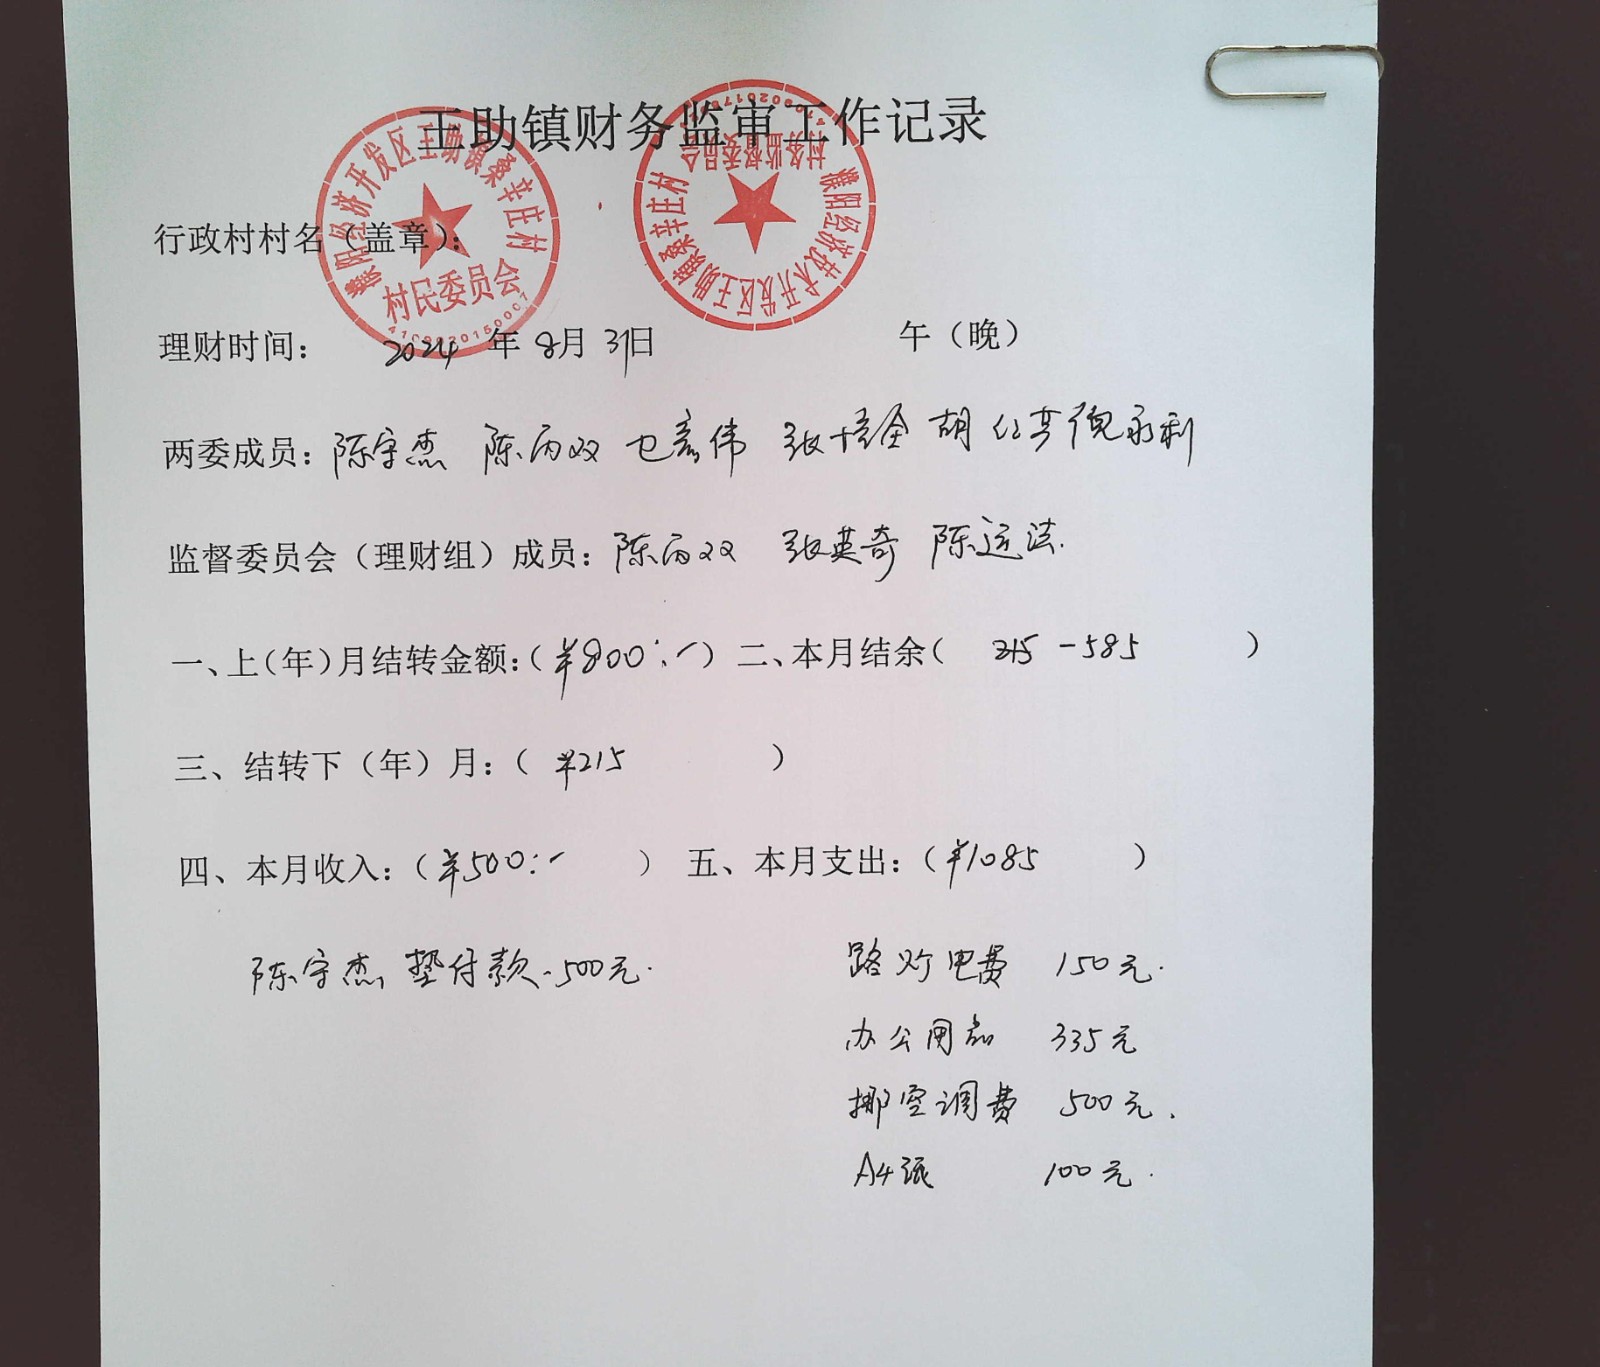 王助镇财务监审工作记录
濮阳经济开发区王助镇桑辛庄村
村民委员会
4109020150007
濮阳经济技术开发区王助镇桑辛庄村
村务监督委员会
行政村村名（盖章）：
理财时间： 2024 年 8月 31日 午（晚）
两委成员：陈宇杰 陈丙双 张培全 胡 德永利
监督委员会（理财组）成员：陈丙双 张英奇 陈运法.
一、上（年）月结转金额：（¥800:-） 二、本月结余（ 215 -585 ）
三、结转下（年）月：（ ¥215 ）
四、本月收入：（¥500:- ） 五、本月支出：（¥1085 ）
陈宇杰 垫付款-500元. 路灯电费 150元.
办公用品 335元
挪空调费 500元.
A4纸 100元.